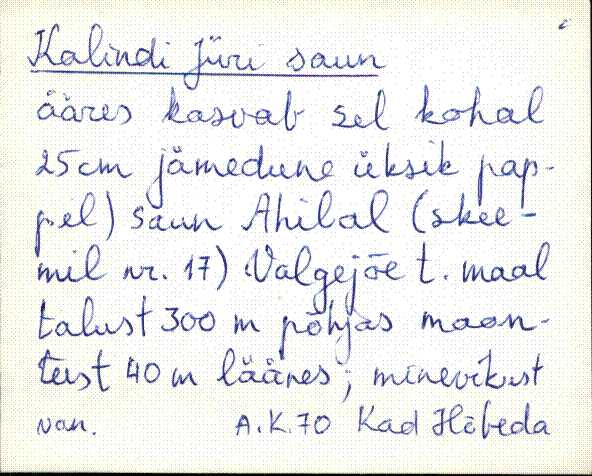 Kalindi Jüri saun
ääres kasvab sel kohal
25 cm jämedune üksik pap-
pel) saun Ahilal (skee-
mil nr. 17) Valgejõe t. maal
talust 300 m põhjas maan-
teest 40 m lääres; minevikust
van. A.K.70 Kad Hõbeda